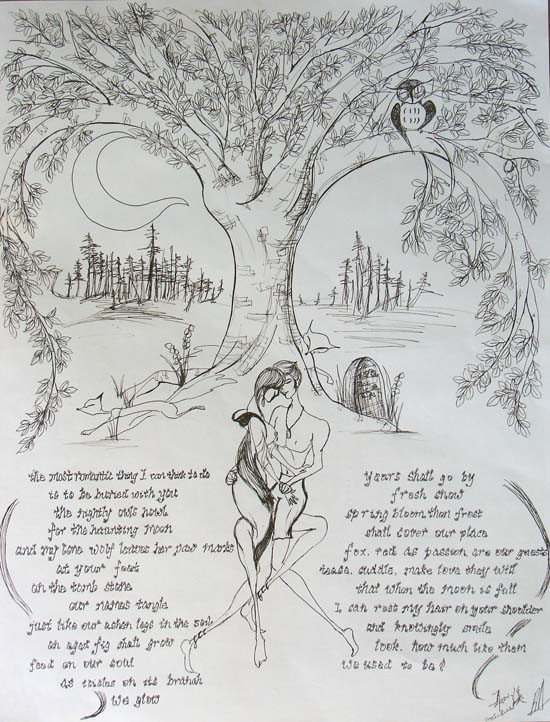 the most romantic thing I can think to do
is to be buried with you
the nightly owls howl
for the haunting moon
and my lone wolf leaves her paw marks
at your feet
on the tomb stone
our names tangle
just like our ashen legs in the soil
an aged fig shall grow
feed on our soul
as icicles on its branch
we glow
years shall go by
fresh snow
spring bloom, then frost
shall cover our place
fox, red as passion are our guests
tease, cuddle, make love they will
that when the moon is full
I can rest my hair on your shoulder
and knowingly smile
look, how much like them
we used to be?